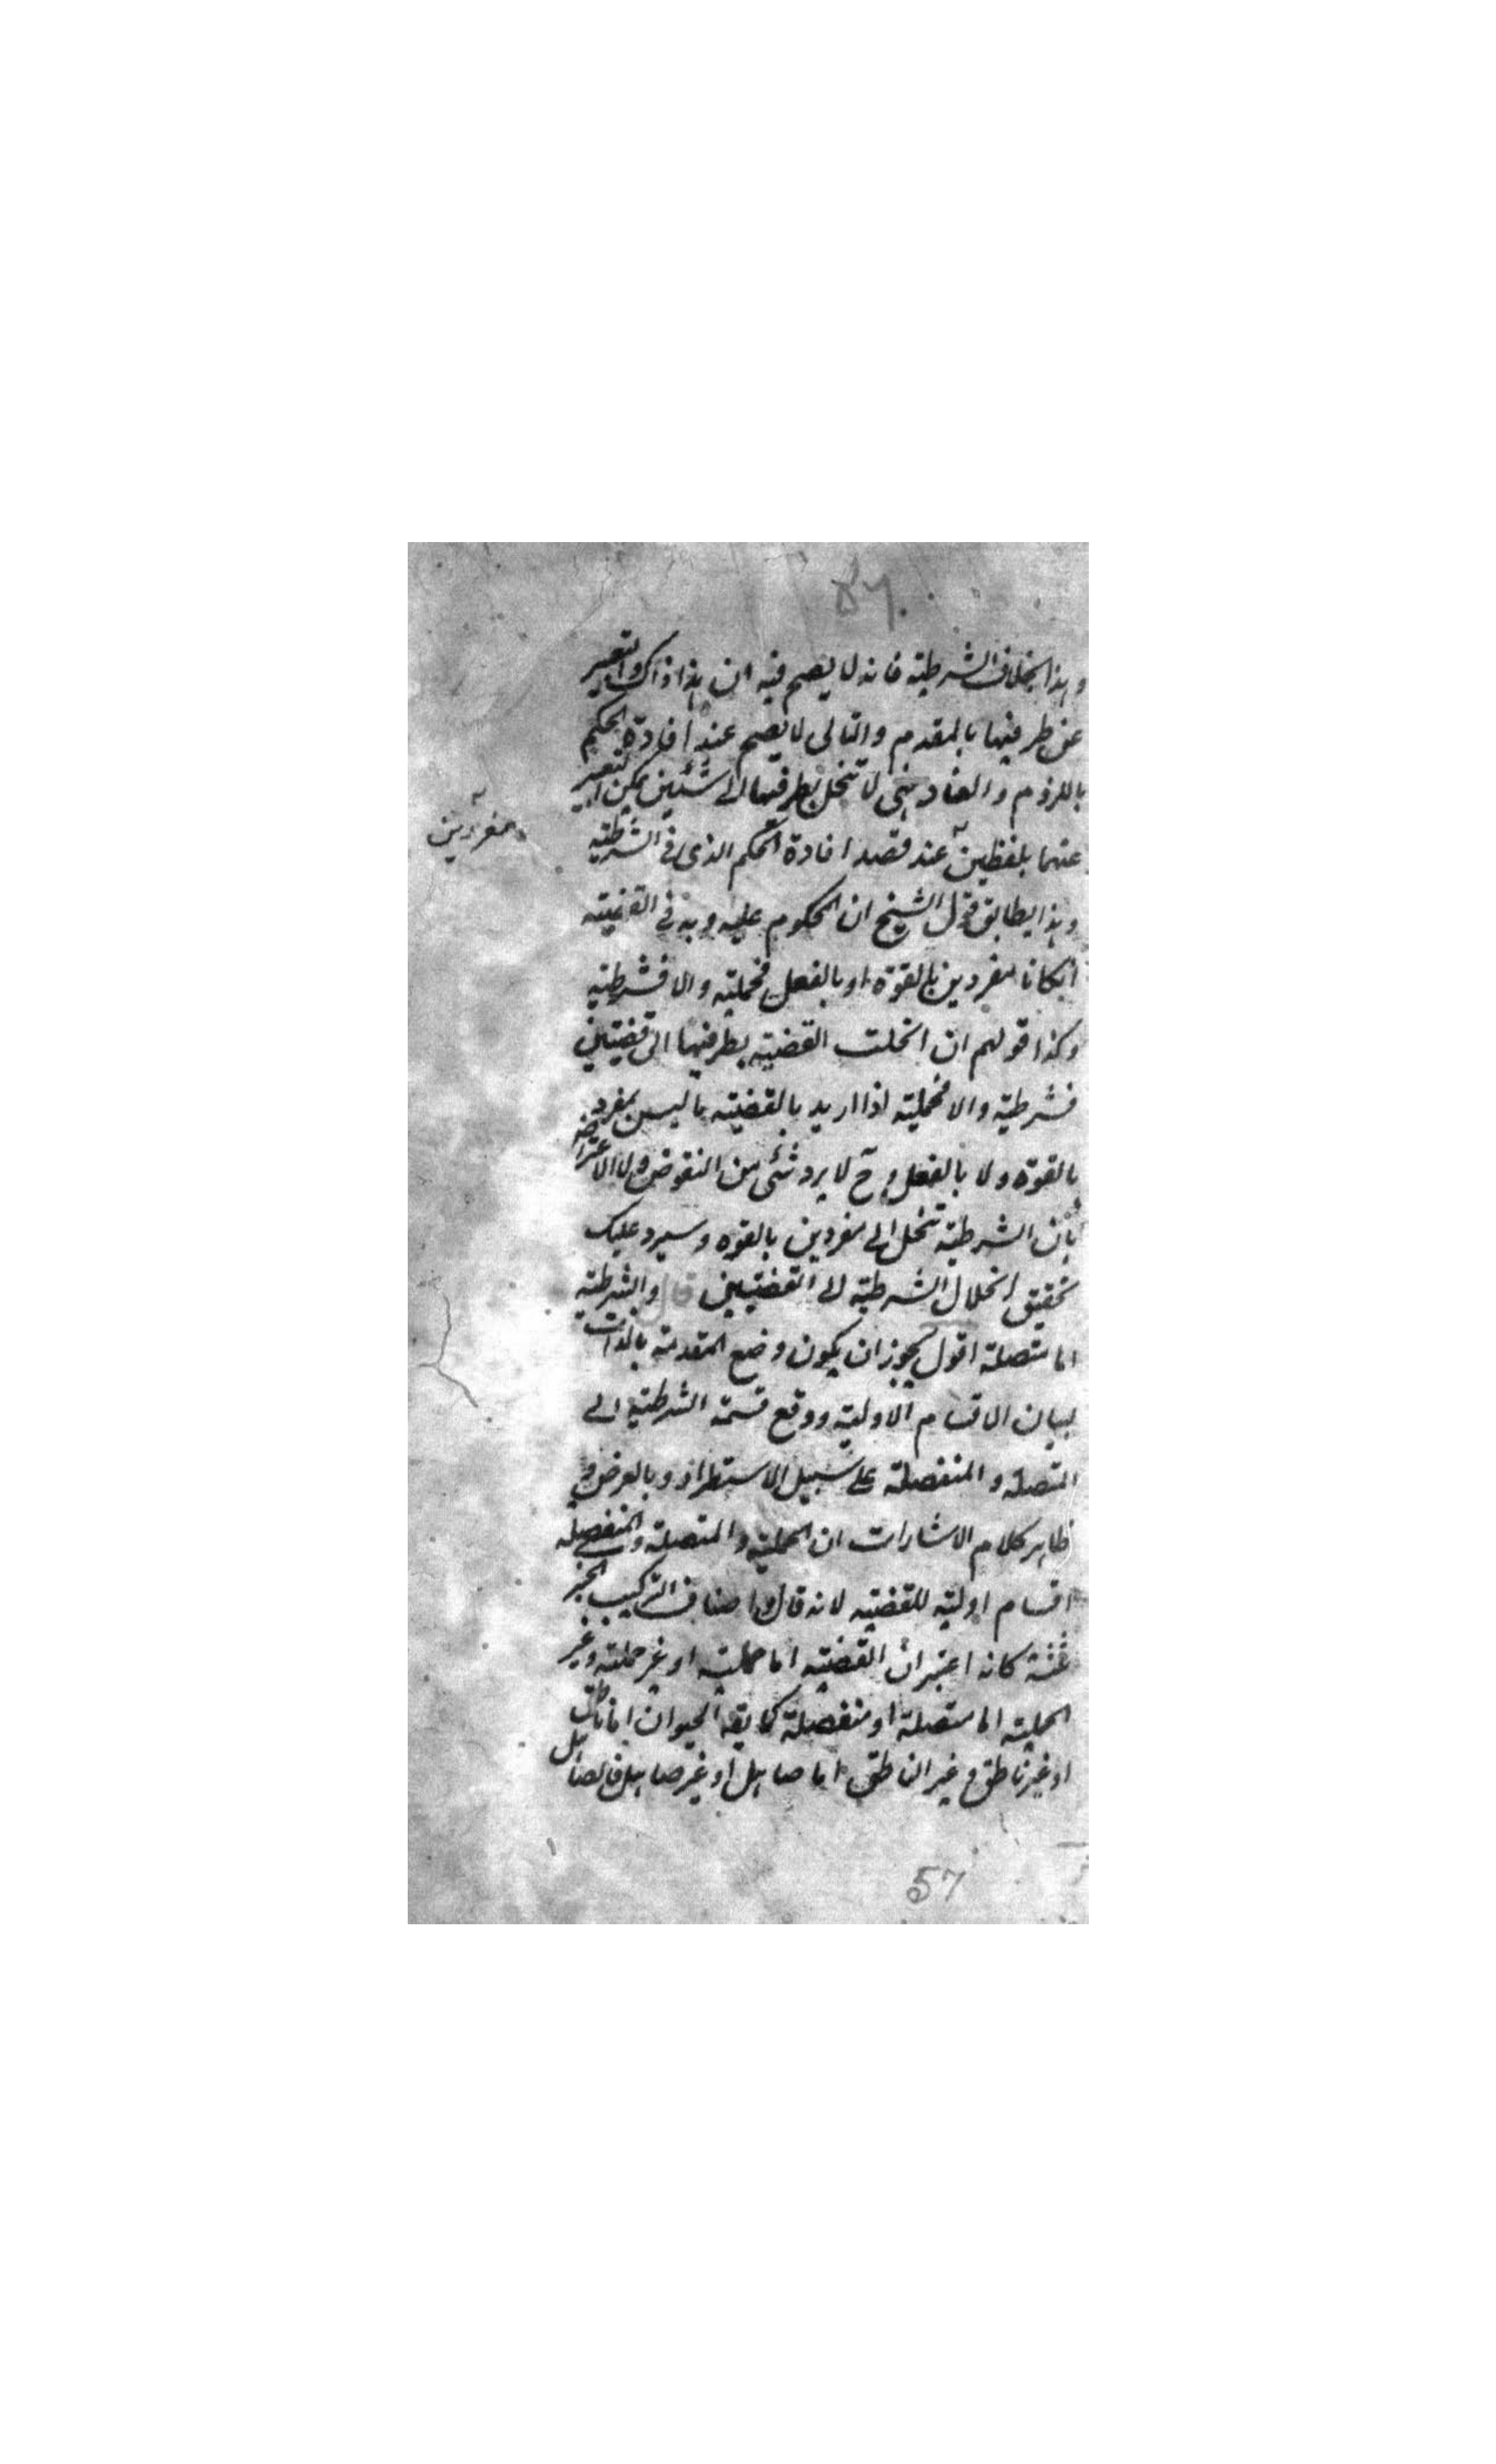 وهذا بخلاف الشرطية فانه لا يصح فيه ان هذا ذاك والتعبير
عن طرفيها بالمقدم والتالى لا يصح عند افادة الحكم
باللزوم والعناد فهى لا تنحل بطرفيها الى شيئين يمكن التعبير
عنهما بلفظين عند قصد افادة الحكم الذى فى الشرطية
مفردين
وهذا يطابق قول الشيخ ان المحكوم عليه وبه فى القضية
انكانا مفردين بالقوة او بالفعل فحملية والا فشرطية
وكذا قولهم ان انحلت القضية بطرفيها الى قضيتين
فشرطية والا فحملية اذا اريد بالقضية ما ليس بمفرد
بالقوة ولا بالفعل وح لا يرد شئ من النقوض ولا الاعتراض
بان الشرطية تنحل الى مفردين بالقوه وسيرد عليك
تحقيق انحلال الشرطية الى القضيتين قال والشرطية
اما متصلة اقول يجوز ان يكون وضع المقدمة بالذات
لبيان الاقسام الاولية ووقع قسمة الشرطية الى
المتصلة والمنفصلة على سبيل الاستطراد وبالعرض و
ظاهر كلام الاشارات ان الحملية والمتصلة والمنفصلة
اقسام اولية للقضية لانه قال واصناف التركيب الخبر
ثلثة كانه اعتبر ان القضية اما حملية او غير حملية وغير
الحملية اما متصلة او منفصلة كما يقه الحيوان اما ناطق
او غير ناطق وغير الناطق اما صاهل او غير صاهل فالصاهل
57